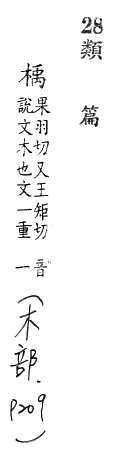 28類篇
楀果羽切又王矩切說文木也文一重一音(木部.p209)